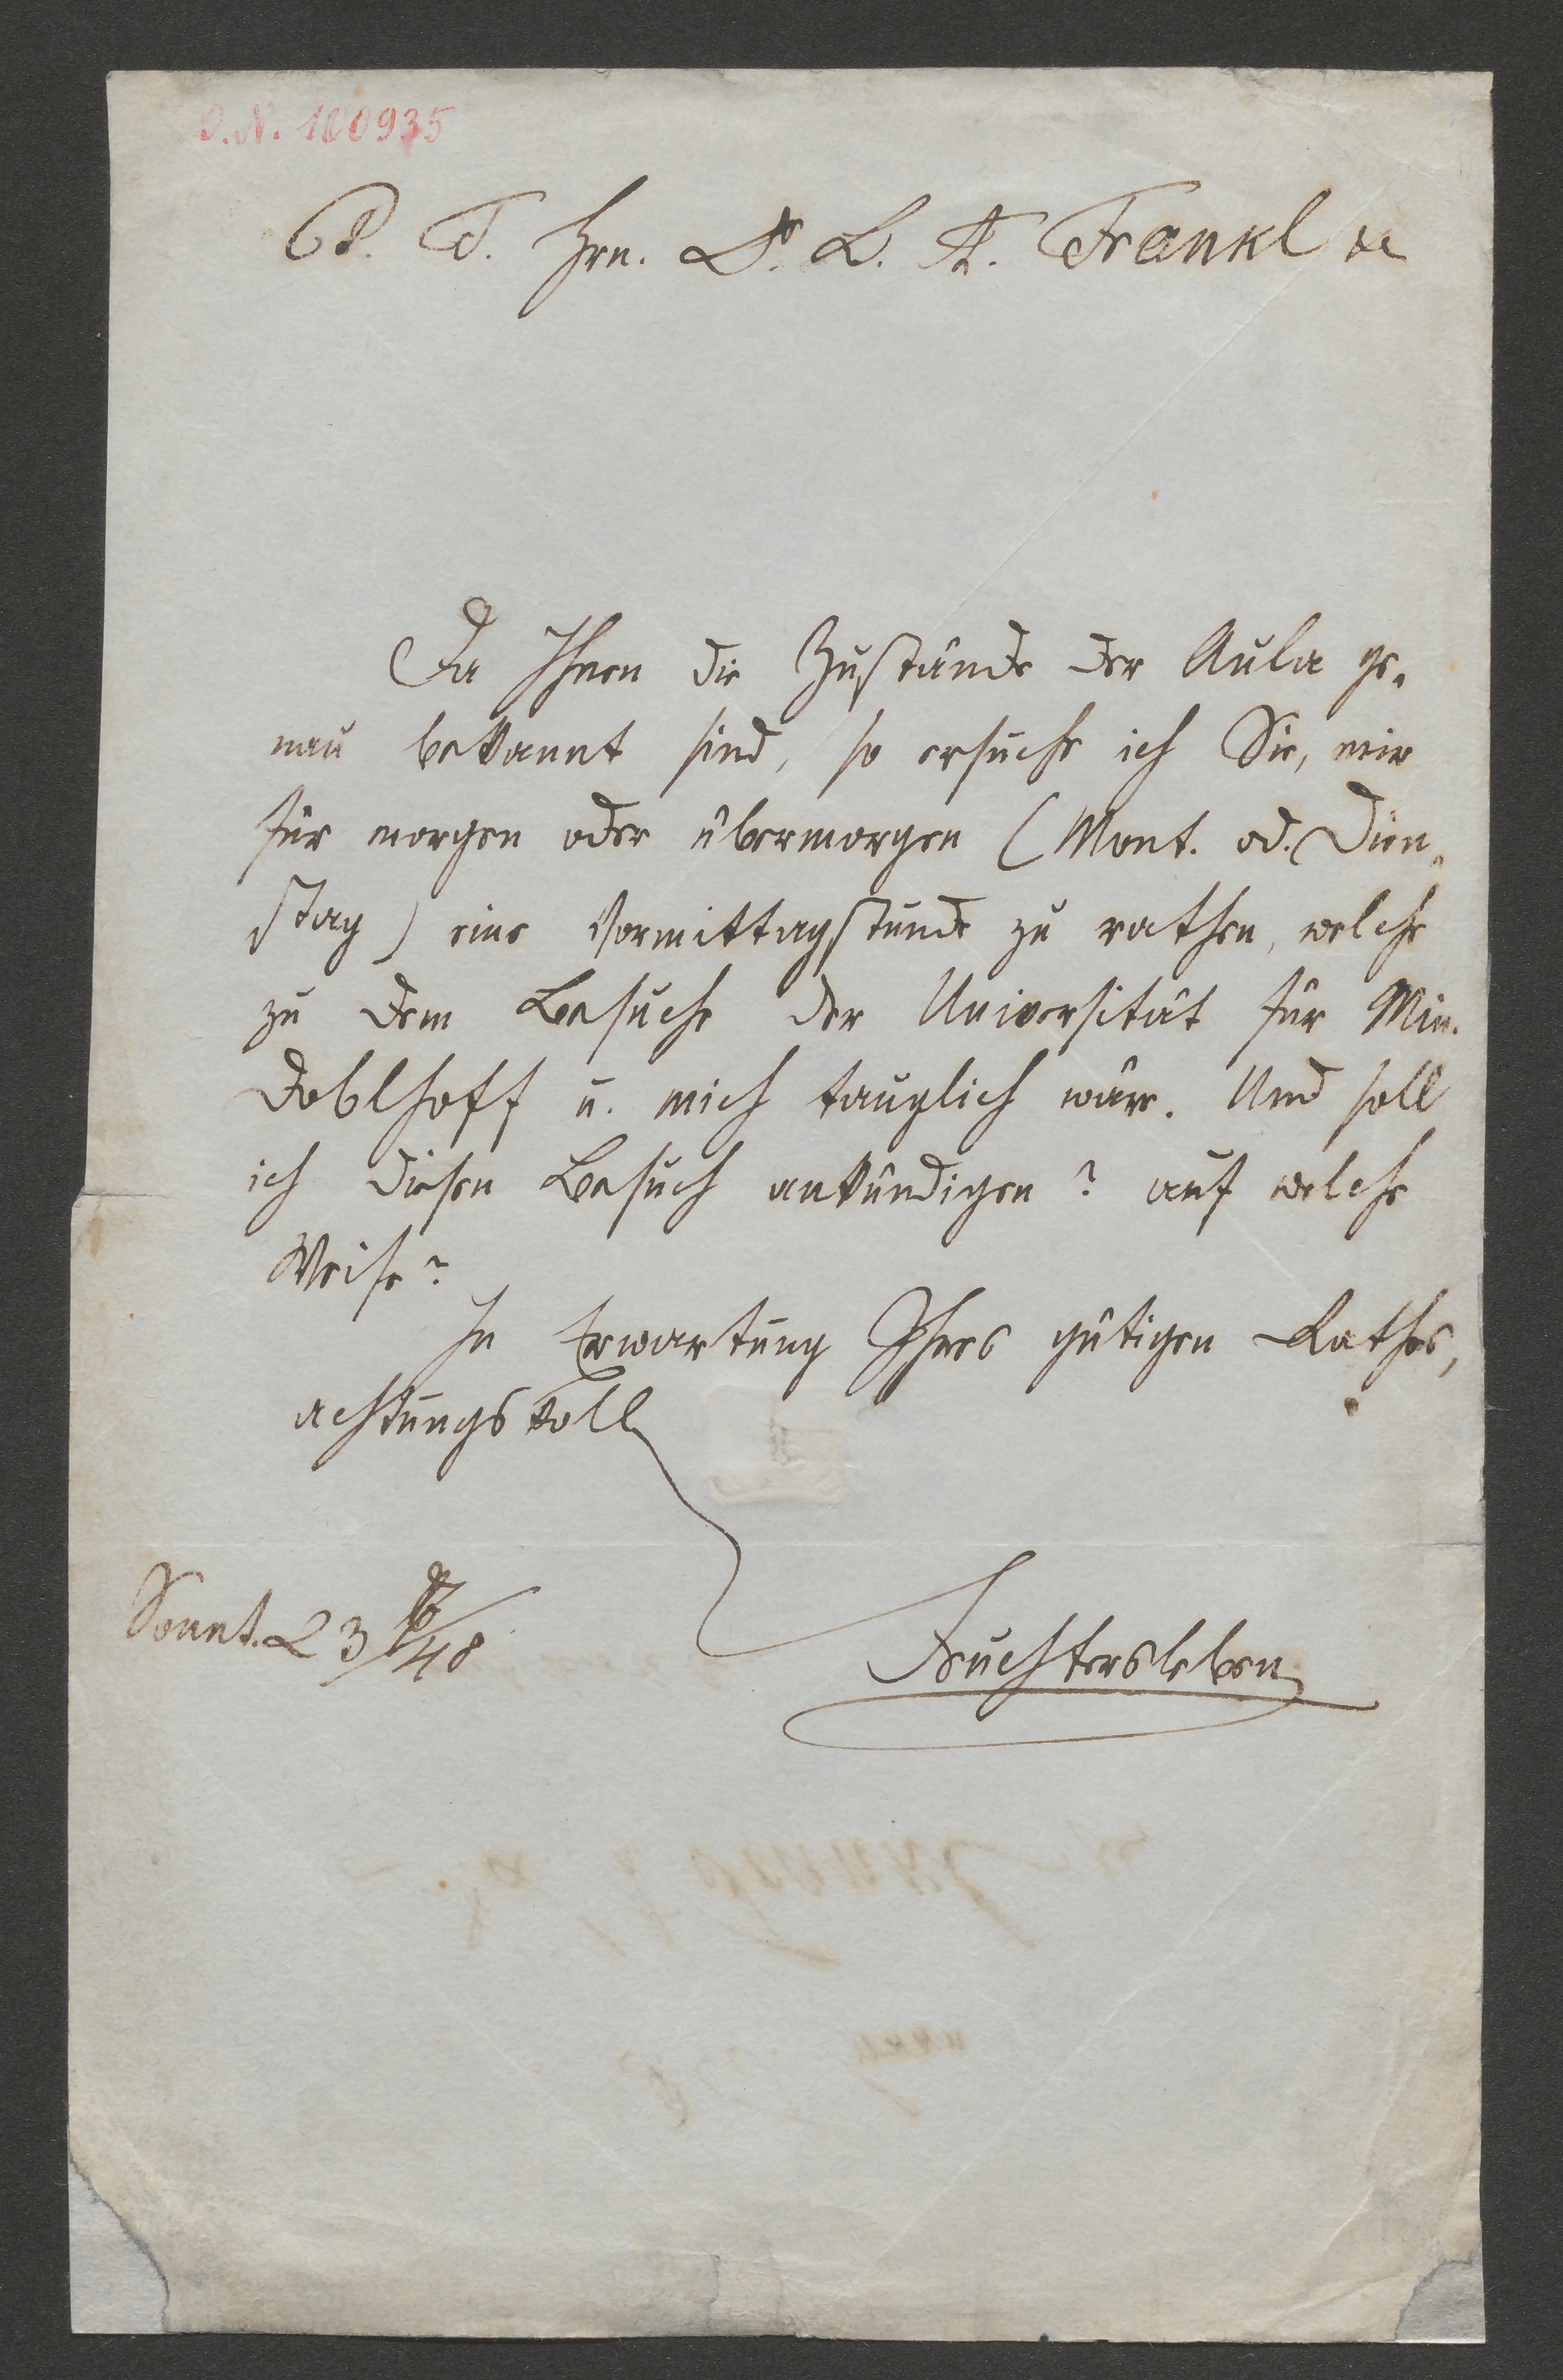 I.N. 100935
P. T. Hrn. Dr. L. A. Frankl &c
Da Ihnen die Zustände der Aula ge-
nau bekannt sind, so ersuche ich Sie, mir
für morgen oder übermorgen (Mont. od. Dien-
stag) eine Vormittagstunde zu rathen, welche
zu dem Besuche der Universität für Min.
Doblhoff u. mich tauglich wäre. Und soll
ich diesen Besuch ankündigen? auf welche
Weise?
In Erwartung Ihres gütigen Rathes,
achtungsvoll
Feuchtersleben
Sonnt. 23/7/48